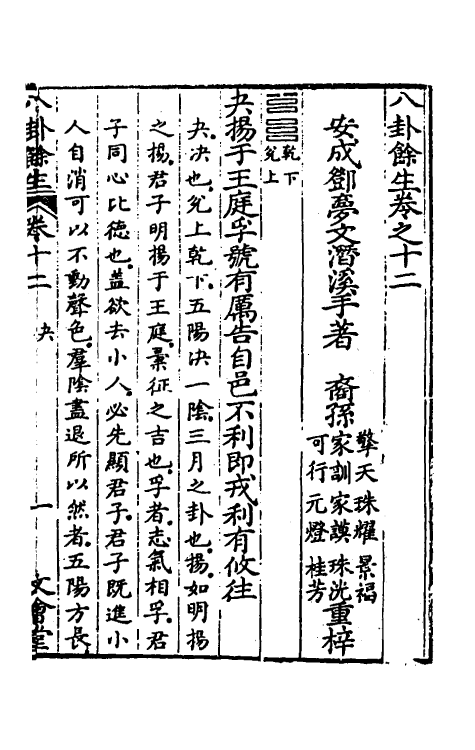 八卦餘生卷之十二
安成鄧夢文潛溪手著　裔孫
擎天　珠耀　景福
家訓　家謨　珠洸
可行　元燈　桂芳
重梓
乾下
兌上
夬揚于王庭孚號有厲告自邑不利即戎利有攸往
夬。决也。兌上乾下。五陽决一陰。三月之卦也。揚。如明揚
之揚。君子明揚于王庭。彙征之吉也。孚者。志氣相孚。君
子同心比德也。蓋欲去小人。必先顯君子。君子既進。小
人自消。可以不動聲色。羣陰盡退。所以然者。五陽方長
八卦餘生　卷十二　夬　一　文會堂